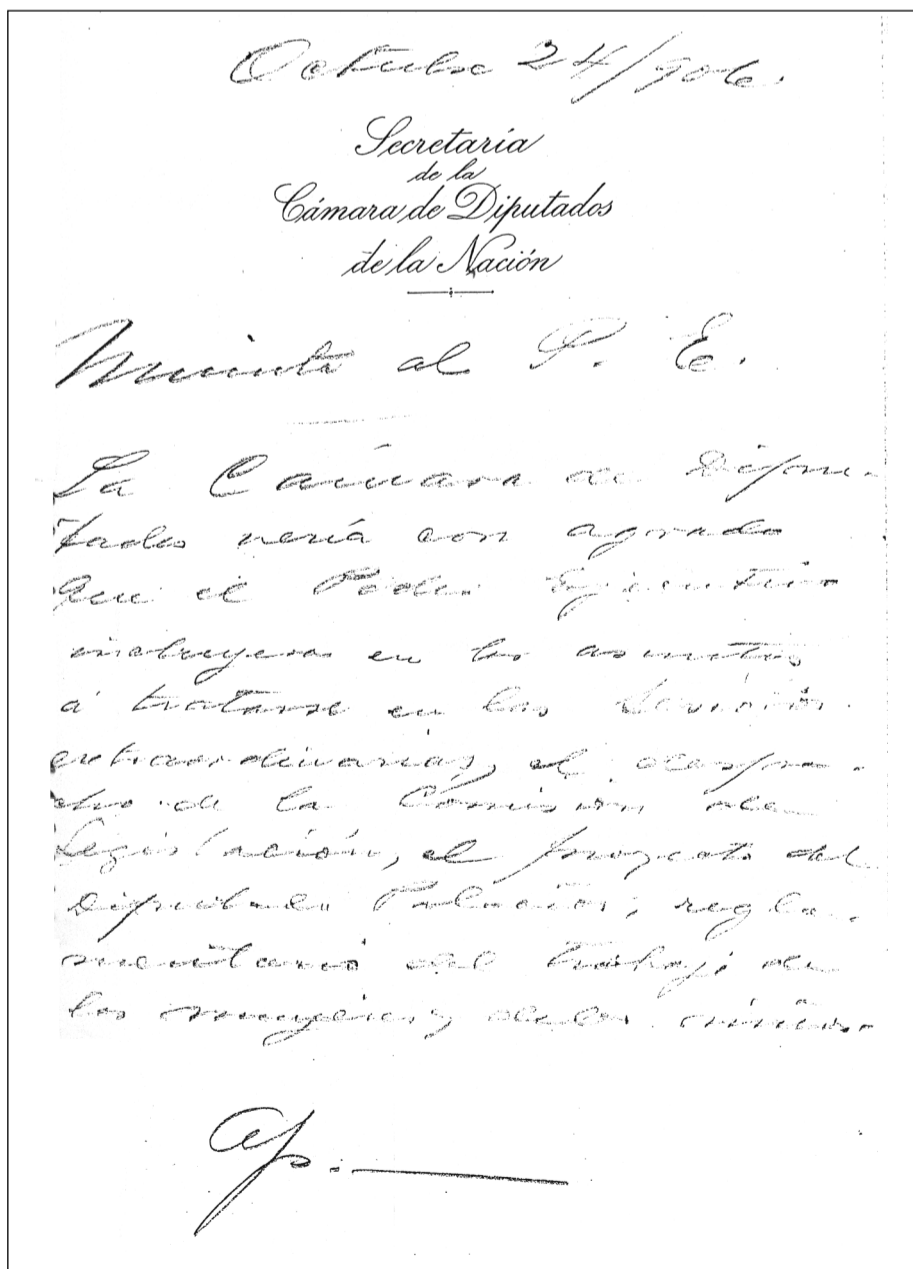 Octubre 24/906.
Secretaría
de la
Cámara de Diputados
de la Nación
Minuta al P. E.
La Cámara de Dipu-
tados vería con agrado
que el Poder Ejecutivo
incluyera en los asuntos
á tratarse en las sesiones
extraordinarias, el despa-
cho de la Comisión de
Legislación, el proyecto del
Diputado Palacios, regla-
mentario del trabajo de
las mugeres y de los niños.
Ap.